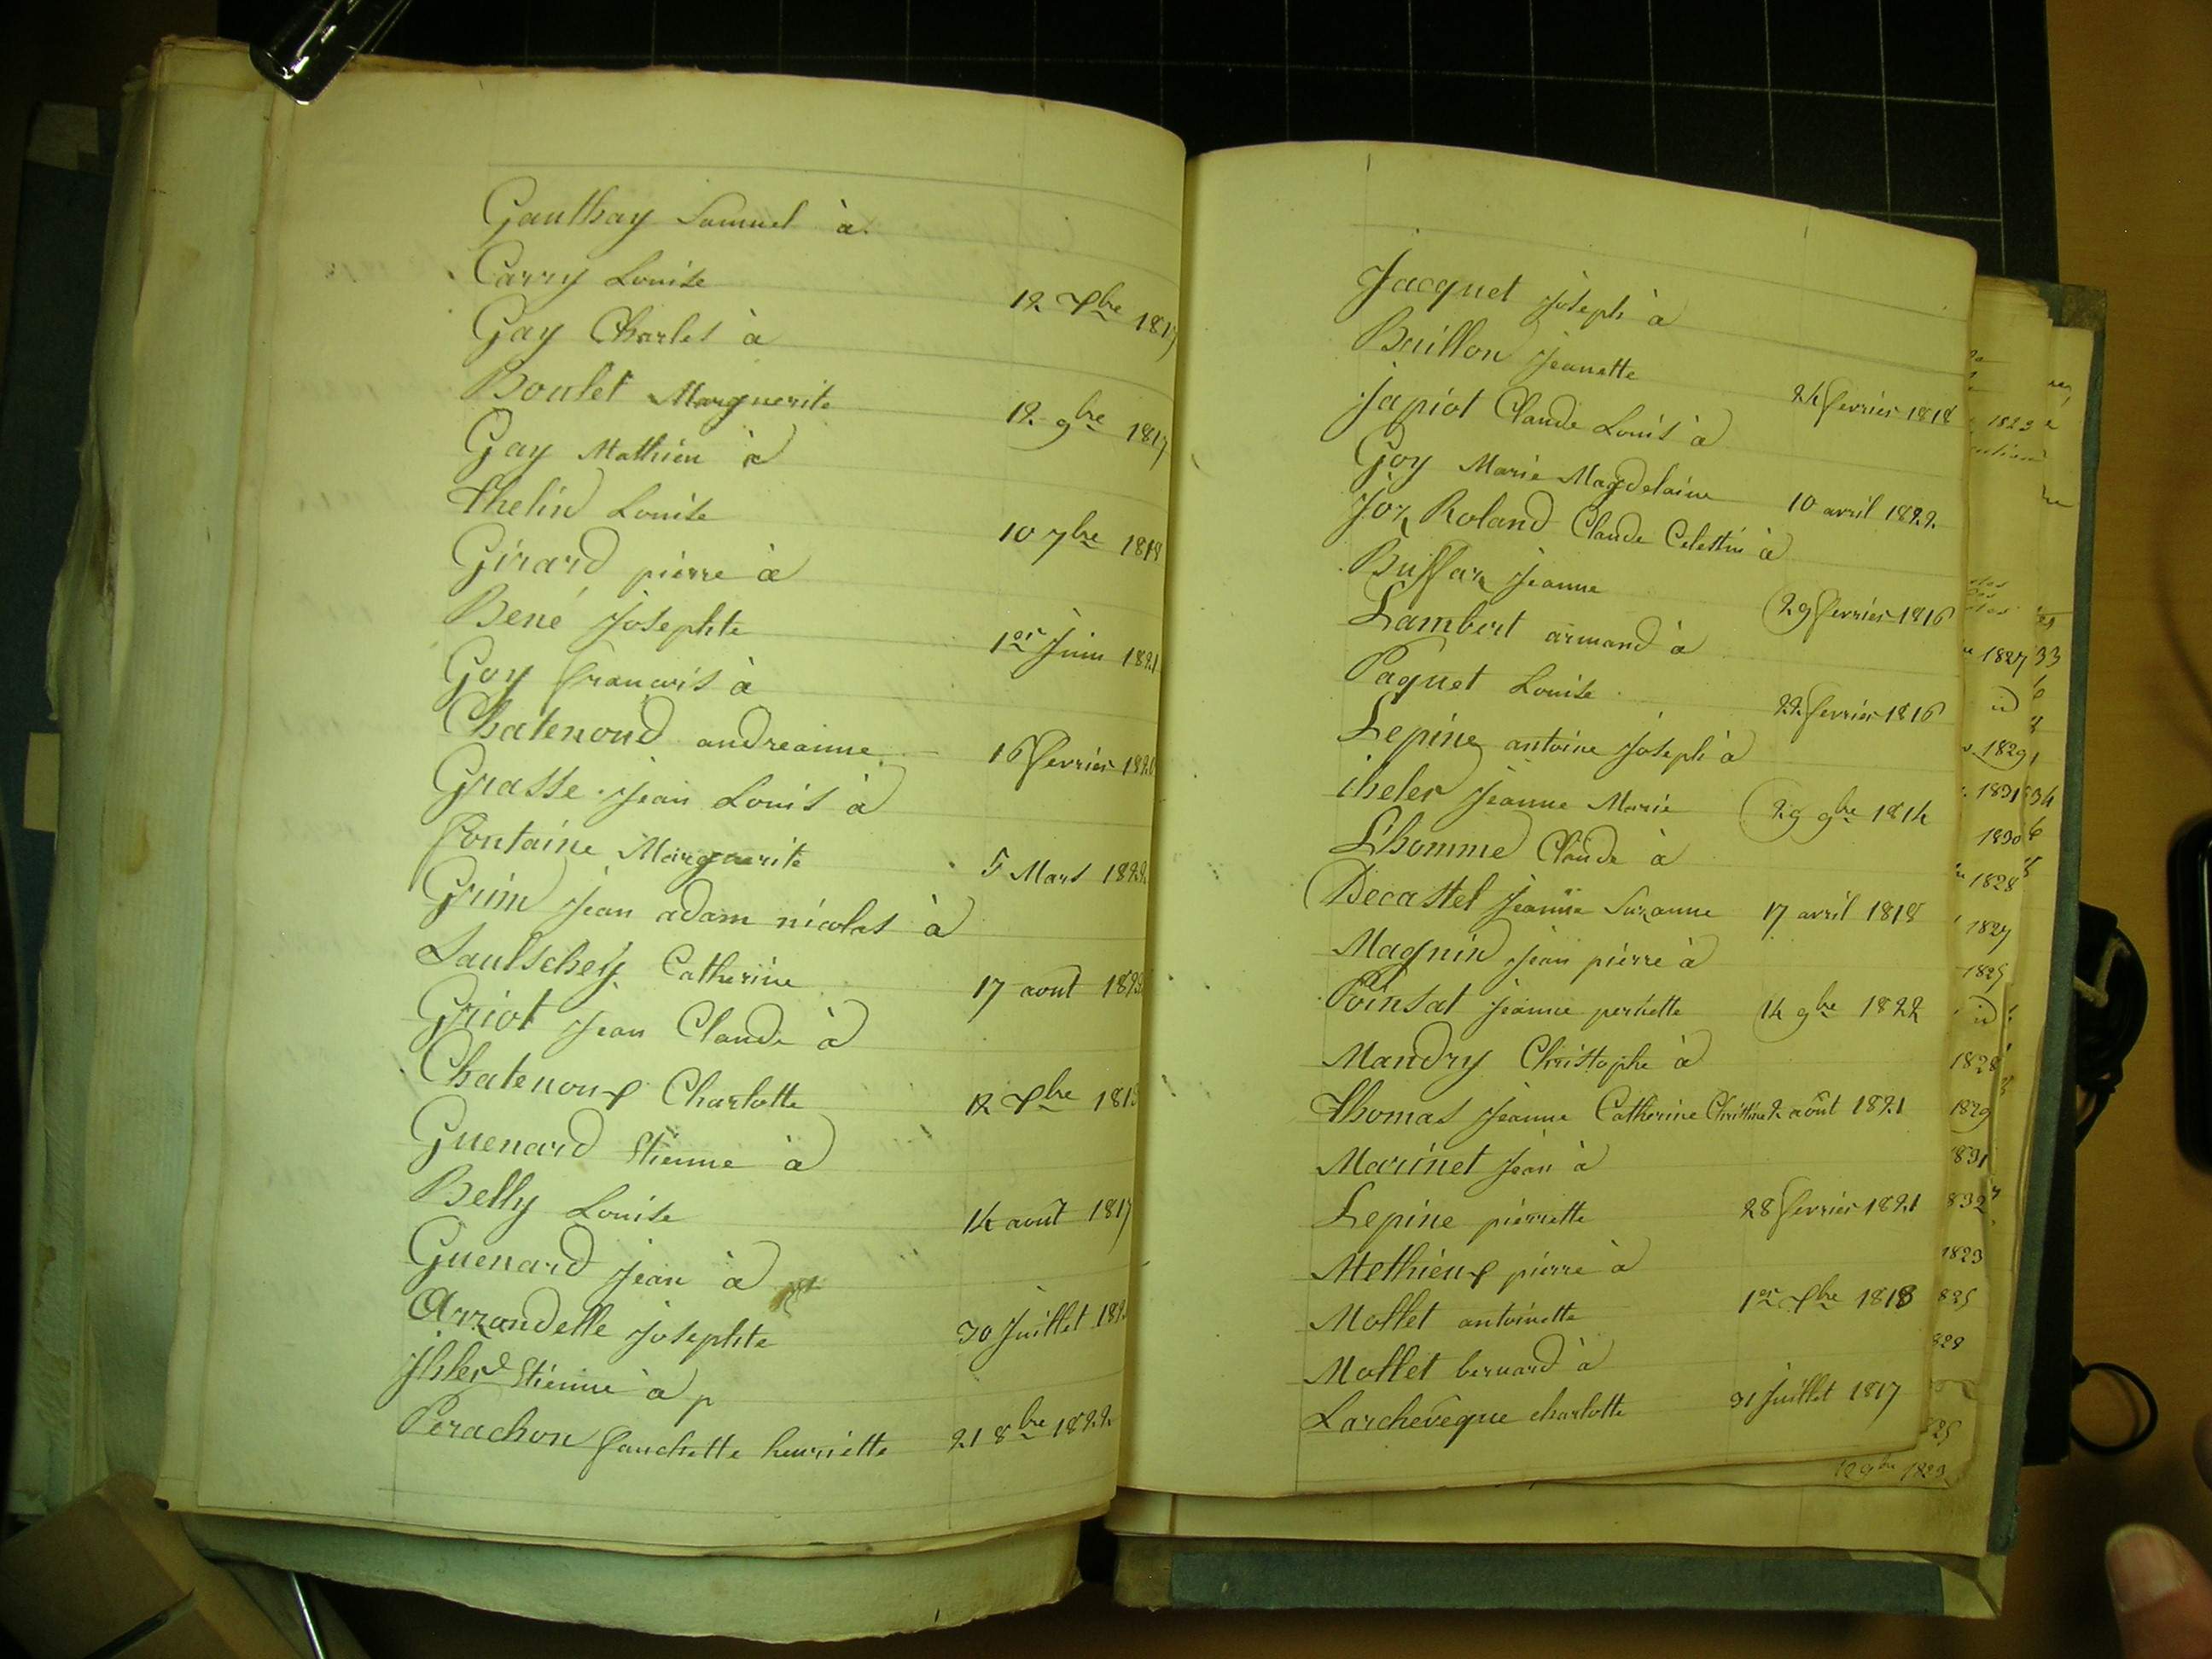 Gauthay Samuel à
Carry Louise 12 Xbre 1817
Gay Charles à
Boulet Marguerite 12 9bre 1817
Gay Mathieu à
thelin Louise 10 7bre 1818
Girard pierre à
Bené Josephte 1er Juin 1821
Goy françois à
Chatenoud andreanne 16 fevrier 182
Grasse Jean Louis à
fontaine Marguerite 5 Mars 1822
Grim Jean adam nicolas à
Saultschey Catherine 17 aout 182
Griot Jean Claude à
Chatenoux Charlotte 12 Xbre 181
Guenard Etienne à
Belly Louise 14 aout 1817
Guenard Jean à
Arrandelle Josephte 30 Juillet 182
Jhler Etienne à
Perachon fanchette henriette 21 8bre 1822
Jacquet Joseph à
Baillon Jeanette 24 fevrier 1818
Japiot Claude Louis à
Goy Marie Magdelaine 10 avril 1822
Joz Roland Claude Celestin à
Buffaz Jeanne 29 fevrier 1816
Lambert armand à
Paquet Louise 22 fevrier 1816
Lepine antoine Joseph à
iheler Jeanne Marie 29 9bre 1814
Lhomme Claude à
Decastel Jeanne Suzanne 17 avril 1818
Magnin Jean pierre à
Poinsat Jeanne pernette 14 9bre 1822
Mandry Christophe à
thomas Jeanne Catherine Christine 2 août 1821
Marinet Jean à
Lepine pierrette 28 fevrier 1821
Methieux pierre à
Mollet antoinette 1er Xbre 1818
Mollet bernard à
Larchevêque charlotte 31 Juillet 1817
1823
1827 33
id
1829
1831 34
1830
1828
1827
1825
id
1828
1829
1831
832
1823
825
828
25
12 9bre 1823